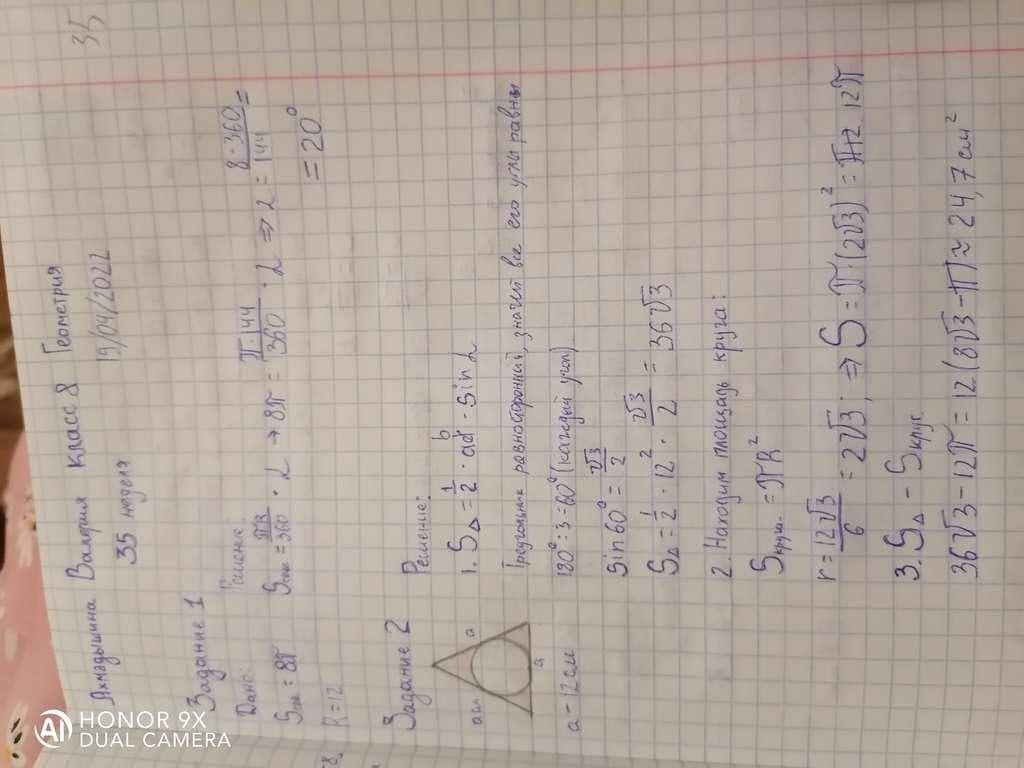 35
Ахмадышина Валерия класс 8 Геометрия
35 неделя 19/04/2022
Задание 1
Дано: Решение:
Sсек = 8π Sсек = πR/360 · α → 8π = π·144/360 · α ⇒ α = 8·360/144 =
R = 12 = 20°
Задание 2 Решение:
a a a
a - 12 см
1. S△ = 1/2 · ab · sin α
Треугольник равносторонний, значит все его углы равны
180° : 3 = 60° (каждый угол)
Sin 60° = √3/2
S△ = 1/2 · 12² · √3/2 = 36√3
2. Находим площадь круга:
Sкруг. = πR²
r = 12√3/6 = 2√3; ⇒ S = π·(2√3)² = 12π
3. S△ - Sкруг
36√3 - 12π = 12(3√3 - π) ≈ 24,7 см²
HONOR 9X
DUAL CAMERA